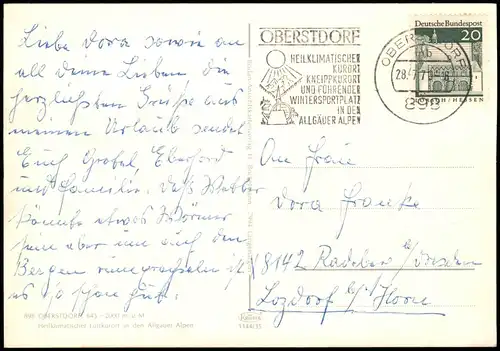 Liebe Dora sowie an
all deine Lieben die
herzlichsten Grüße aus
meinem Urlaub sendet
Euch Grobel Eberhard
und Familie. Das Wetter
könnte etwas wärmer
sein aber um auf den
Bergen rum ist
es so schon gut.
898 OBERSTDORF, 843 - 2000 m ü. M.
Heilklimatischer Luftkurort in den Allgäuer Alpen
OBERSTDORF
HEILKLIMATISCHER
KURORT
KNEIPPKURORT
UND FÜHRENDER
WINTERSPORTPLATZ
IN DEN
ALLGÄUER ALPEN
OBERSTDORF
28.-7.7
898
Deutsche Bundespost
20
LORSCH / HESSEN
An Frau
Dora Franke
8142 Radeberg b/ Dresden
Lozdorf